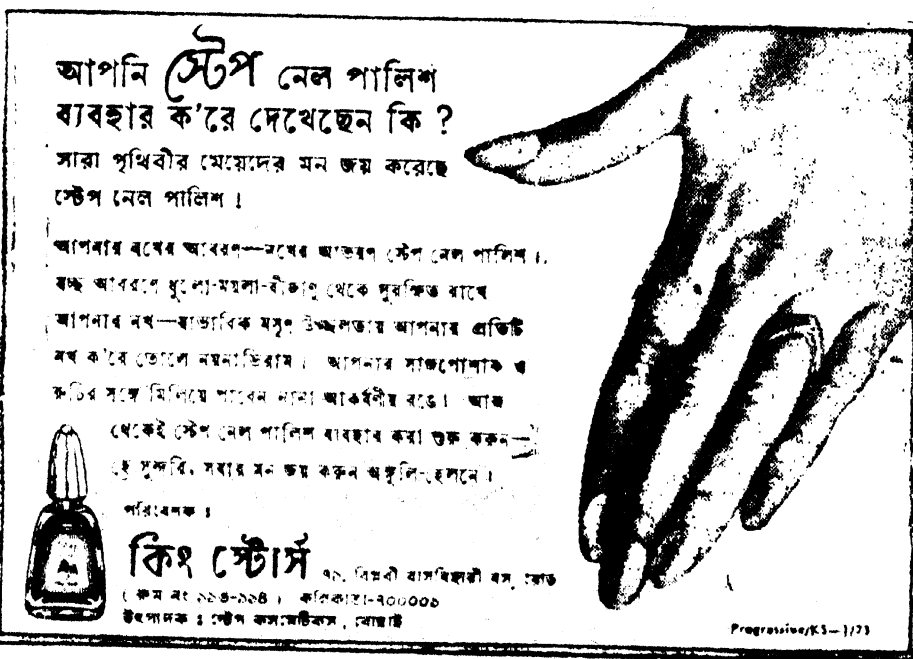 আপনি স্টেপ নেল পালিশ
ব্যবহার ক'রে দেখেছেন কি ?
সারা পৃথিবীর মেয়েদের মন জয় করেছে
স্টেপ নেল পালিশ !
আপনার নখের আবরণ—নখের আভরণ স্টেপ নেল পালিশ ।
স্বচ্ছ আবরণে ধুলো-ময়লা-বীজাণু থেকে সুরক্ষিত রাখে
আপনার নখ—স্বাভাবিক মসৃণ উজ্জ্বলতায় আপনার প্রতিটি
নখ ক'রে তোলে নয়নাভিরাম । আপনার সাজপোশাক ও
রুচির সঙ্গে মিলিয়ে পাবেন নানা আকর্ষণীয় রঙে । আজ
থেকেই স্টেপ নেল পালিশ ব্যবহার করা শুরু করুন—
হে সুন্দরি, সবার মন জয় করুন অঙ্গুলি-হেলনে ।
পরিবেশক :
কিং স্টোর্স ৭১, বিপ্লবী রাসবিহারী বসু রোড
( রুম নং ১১৩-১১৪ ) কলিকাতা-৭০০০০১
উৎপাদক : স্টেপ কসমেটিকস, বোম্বাই
Progressive/KS—1/73